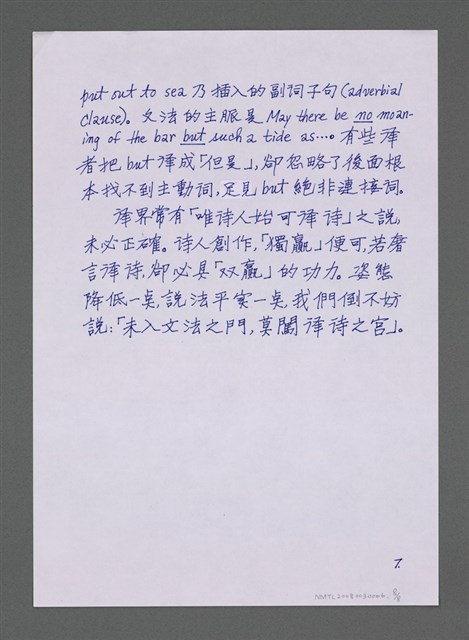 put out to sea 乃插入的副词子句(adverbial
clause)。文法的主脈是 May there be no moan-
ing of the bar but such a tide as…。有些译
者把 but 译成「但是」,卻忽略了後面根
本找不到主動词,足見 but 絕非連接词。
译界常有「唯诗人始可译诗」之説,
未必正確。诗人創作,「獨贏」便可,若奢
言译诗,卻必具「双贏」的功力。姿態
降低一点,説法平实一点,我們倒不妨
説:「未入文法之門,莫闖译诗之宫」。
7.